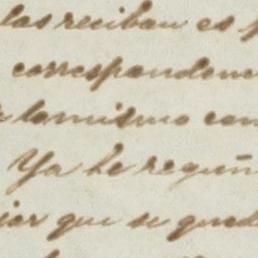 las reciban es
correspondenc
lo mismo con
Ya he requ
que se qued